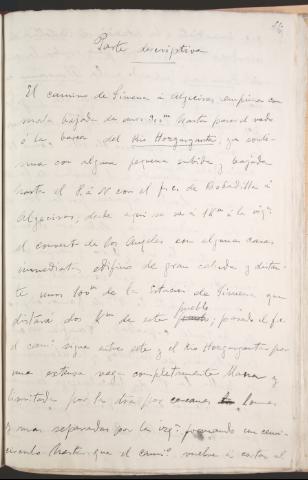 Parte descriptiva
El camino de Jimena á Algeciras empieza con
mala bajada de unos 200 m hasta pasar el vado
ó la barca del Rio Hozgarganta, ya conti-
nua con alguna pequeña subida y bajada
hasta el P. á N con el f.c. de Bobadilla á
Algeciras, desde aqui se ve á 1 Km á la izq.
el convento de los Angeles con algunas casas
inmediatas edificio de gran cabida y distan-
te unos 100 m de la Estacion de Jimena que
distará dos Km de este pueblo; pasado el f.c.
el cam.o sigue entre este y el Rio Hozgarganta por
una extensa vega completamente llana y
limitada por la dra por cercanas lomas
y mas separadas por la izq. formando un semi-
circulo hasta que el cam.o vuelve á cortar el